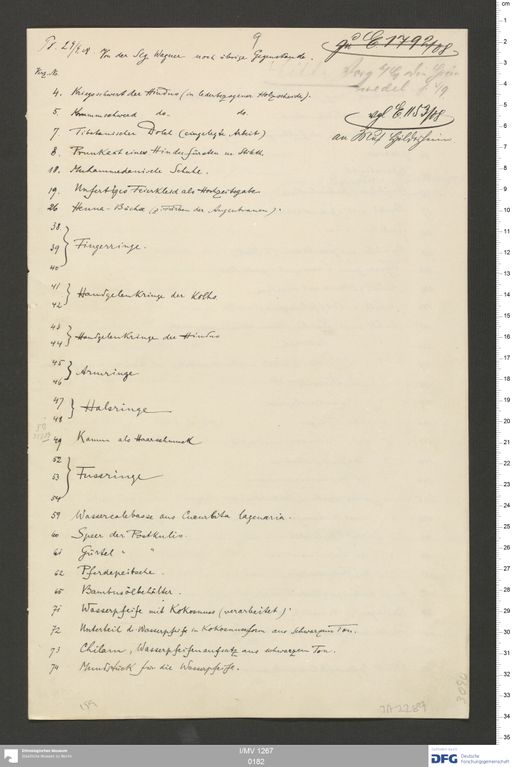 9
Von der Slg. Wagner noch übrige Gegenstände.
E 1792/08
vgl E 1153/08
an Mus Hildesheim
4. Kriegsschwert der Hindus (in lederbezogener Holzscheide).
5. Krummschwert do. do.
7 Tibetanischer Dolch (eingelegte Arbeit)
8. Prunkaxt eines Hindufürsten
18. Muhammedanische Schuhe.
19. Unfertiges Feierkleid als Hochzeitsgabe
26 Henna-Büchse (z. Färben der Augenbrauen).
38.
39 Fingerringe.
40
41
42 Handgelenkringe der Kolhs
43
44 Handgelenkringe der Hindus
45
46 Armringe
47
48 Halsringe
49 Kamm als Haarschmuck
52
53 Fussringe
54
59 Wassercalebasse aus Cucurbita lagenaria.
60 Speer der Postkulis.
61 Gürtel " "
62 Pferdepeitsche.
65 Bambusölbehälter.
71 Wasserpfeife mit Kokosnuss (verarbeitet).
72 Unterteil d. Wasserpfeife in Kokosnussform aus schwarzem Ton.
73 Chilam, Wasserpfeifenaufsatz aus schwarzem Ton.
74 Mundstück für die Wasserpfeife.
199
Ethnologisches Museum
Staatliche Museen zu Berlin
I/MV 1267
0182
DFG Deutsche
Forschungsgemeinschaft